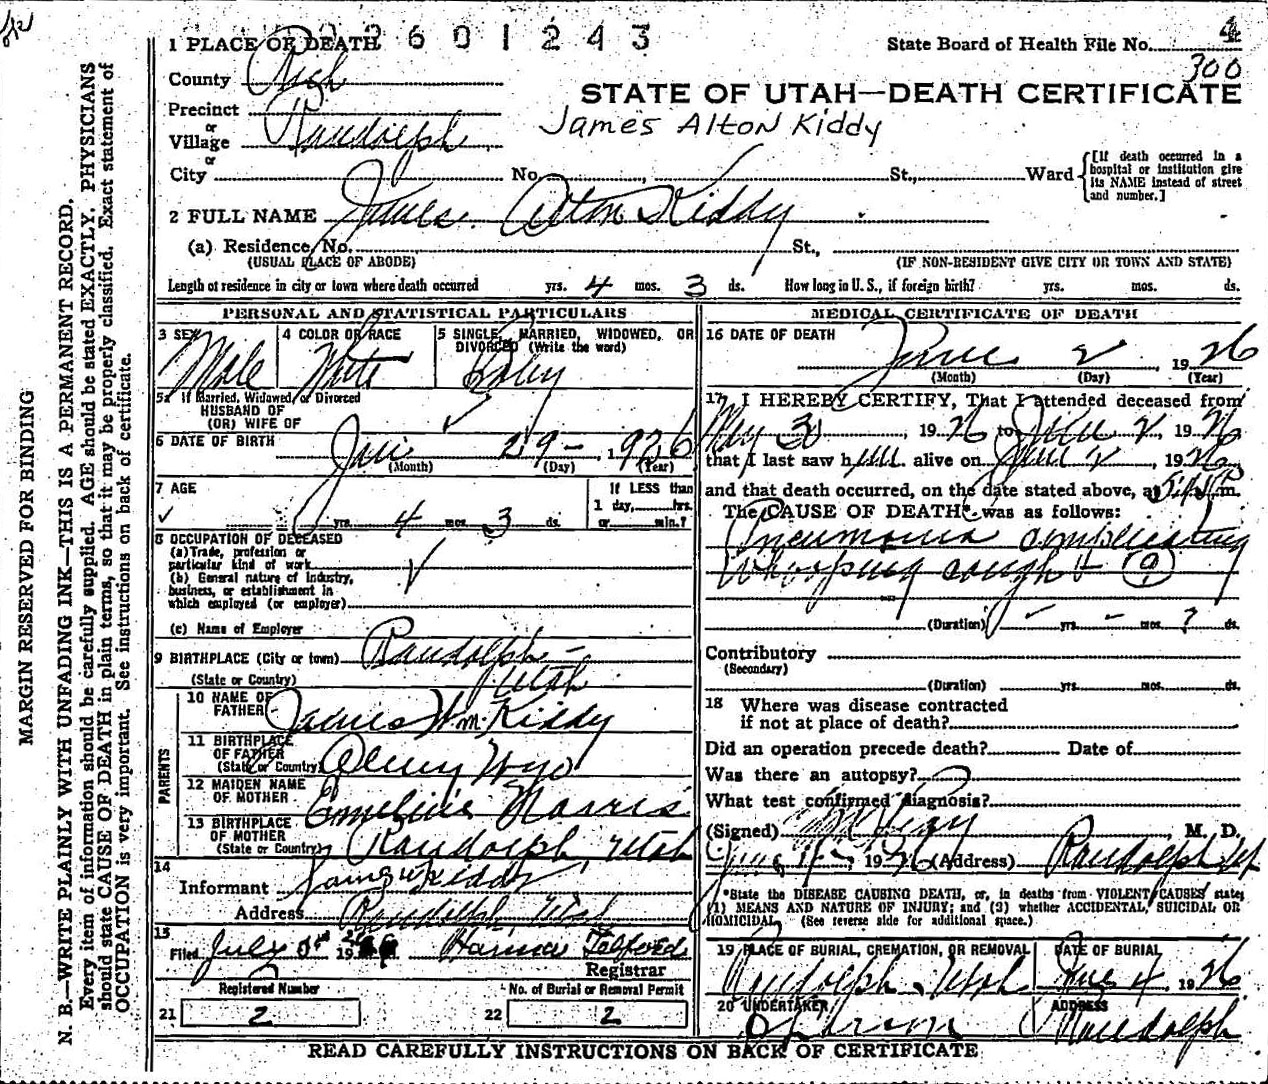 2601243
1 PLACE OF DEATH
State Board of Health File No. 4
300
County Rich
STATE OF UTAH—DEATH CERTIFICATE
Precinct
or
Village Randolph
James Alton Kiddy
or
City No. St., Ward
[If death occurred in a hospital or institution give its NAME instead of street and number.]
2 FULL NAME James Alton Kiddy
(a) Residence, No. St.,
(USUAL PLACE OF ABODE) (IF NON-RESIDENT GIVE CITY OR TOWN AND STATE)
Length of residence in city or town where death occurred yrs. 4 mos. 3 ds. How long in U. S., if foreign birth? yrs. mos. ds.
PERSONAL AND STATISTICAL PARTICULARS
3 SEX Male
4 COLOR OR RACE White
5 SINGLE, MARRIED, WIDOWED, OR DIVORCED (Write the word)
Baby
5a If Married, Widowed, or Divorced
HUSBAND OF
(OR) WIFE OF
6 DATE OF BIRTH 29 - 1926
(Month) (Day) (Year)
7 AGE
yrs. 4 mos. 3 ds.
If LESS than
1 day, hrs.
or min.?
8 OCCUPATION OF DECEASED
(a) Trade, profession or
particular kind of work
(b) General nature of industry,
business, or establishment in
which employed (or employer)
(c) Name of Employer
9 BIRTHPLACE (City or town) Randolph -
(State or Country) Utah
PARENTS
10 NAME OF
FATHER James Wm. Kiddy
11 BIRTHPLACE
OF FATHER
(State or Country) Wyo
12 MAIDEN NAME
OF MOTHER Emeline Norris
13 BIRTHPLACE
OF MOTHER
(State or Country) Randolph Utah
14
Informant James W Kiddy
Address Randolph Utah
15
Filed July 3rd 19
Registrar
Registered Number No. of Burial or Removal Permit
21 2 22 2
MEDICAL CERTIFICATE OF DEATH
16 DATE OF DEATH
June 2 1926
(Month) (Day) (Year)
17 I HEREBY CERTIFY, That I attended deceased from
May 30, 1926 to June 2, 1926
that I last saw him alive on June 2, 1926
and that death occurred, on the date stated above, at m.
The CAUSE OF DEATH* was as follows:
Pneumonia complicating
Whooping cough
9
(Duration) - yrs. - mos. ? ds.
Contributory
(Secondary)
(Duration) yrs. mos. ds.
18 Where was disease contracted
if not at place of death?
Did an operation precede death? Date of
Was there an autopsy?
What test confirmed diagnosis?
(Signed) M. D.
1926 (Address) Randolph Ut
*State the DISEASE CAUSING DEATH, or, in deaths from VIOLENT CAUSES state
(1) MEANS AND NATURE OF INJURY; and (2) whether ACCIDENTAL, SUICIDAL OR
HOMICIDAL. (See reverse side for additional space.)
19 PLACE OF BURIAL, CREMATION, OR REMOVAL
Randolph Utah
DATE OF BURIAL
4 1926
20 UNDERTAKER
ADDRESS
Randolph
READ CAREFULLY INSTRUCTIONS ON BACK OF CERTIFICATE
MARGIN RESERVED FOR BINDING
N. B.—WRITE PLAINLY WITH UNFADING INK—THIS IS A PERMANENT RECORD.
Every item of information should be carefully supplied. AGE should be stated EXACTLY. PHYSICIANS
should state CAUSE OF DEATH in plain terms, so that it may be properly classified. Exact statement of
OCCUPATION is very important. See instructions on back of certificate.